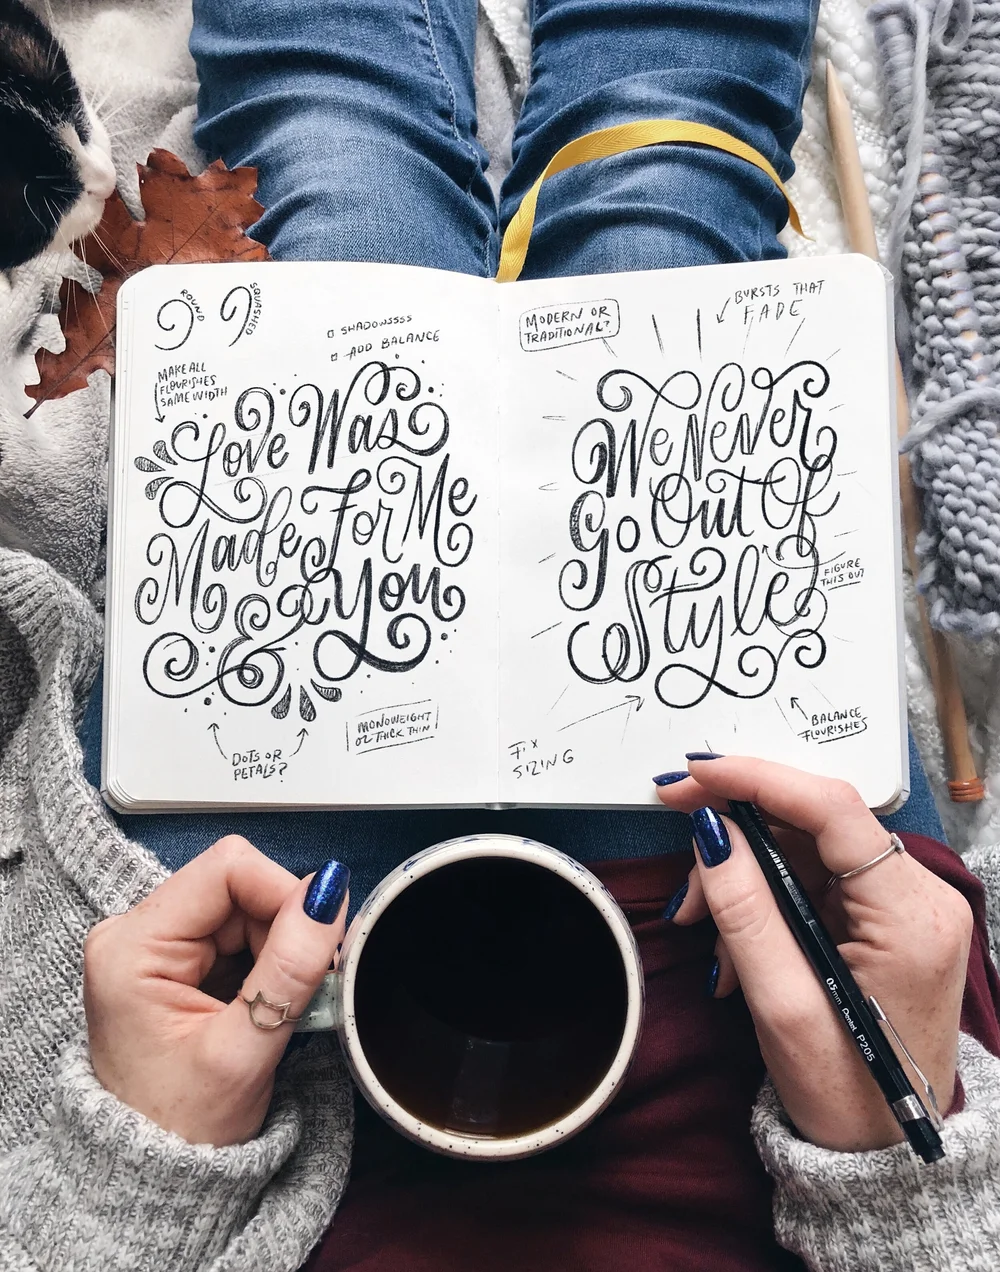 ROUND
SQUASHED
SHADOWSSSS
ADD BALANCE
MAKE ALL
FLOURISHES
SAME WIDTH
Love Was
Made For Me
& You
DOTS OR
PETALS?
MONOWEIGHT
OR THICK THIN
MODERN OR
TRADITIONAL?
BURSTS THAT
FADE
We Never
Go Out Of
Style
FIGURE
THIS OUT
FIX
SIZING
BALANCE
FLOURISHES
0.5mm Pentel P205